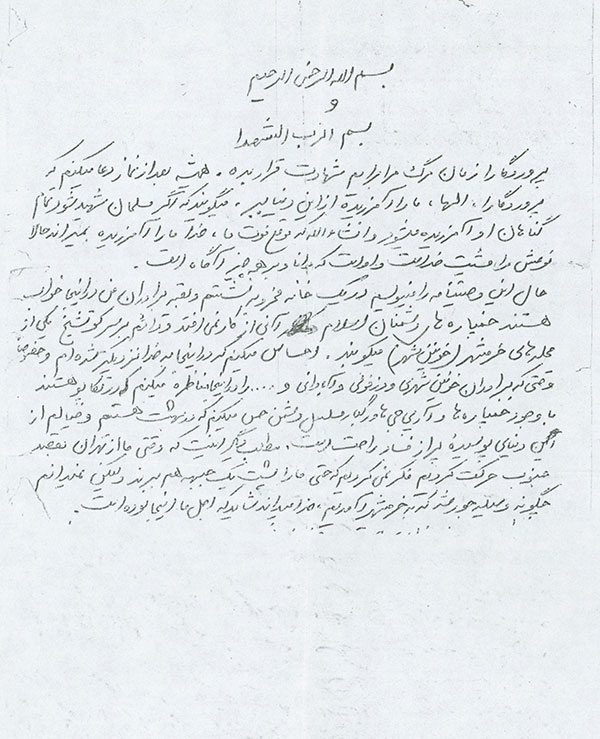 بسم الله الرحمن الرحیم
و
بسم الرب الشهدا
پروردگارا زمان مرگ مرا برایم شهادت قرار بده. همیشه بعد از نماز دعا میکنم که
پروردگارا، الها، ما را آمرزیده از این دنیا ببر. میگویند که اگر مسلمان شهید شود تمام
گناهان او آمرزیده میشود و انشاءالله که موقع فوت ما، خدا ما را آمرزیده بمیراند حالا
نوعش را مشیت خداست و اوست که دانا و بر همه چیز آگاه است.
حال این وصیتنامه را مینویسم در یک خانه مخروبه نشستم و بقیه برادران من در اینجا خواب
هستند خمپاره های دشمنان اسلام آنی از کار نمی افتد و دائم بر سر کوتشیخ یکی از
محله های خرمشهر (خونین شهر) میکوبند. احساس میکنم که در اینجا به خدا نزدیکتر شده ام و خصوصاً
وقتی که برادران خونین شهری و دزفولی و آبادانی و .... را در اینجا مناظره میکنم که در تکاپو هستند
با وجود خمپاره ها و آر پی جی ها و گلوله مسلسل دشمن حس میکنم که در بهشت هستم و خیالم از
این دنیای پوسیده پر از فساد راحت است. مطلب دیگر اینست که وقتی ما از تهران بقصد
جنوب حرکت کردیم فکر نمی کردیم که حتی ما را پشت یک جبهه هم ببرند ولیکن نمیدانم
چگونه وسیله جور شد که به خرمشهر آمدیم، خدا میداند شاید که اجل ما اینجا بوده است.